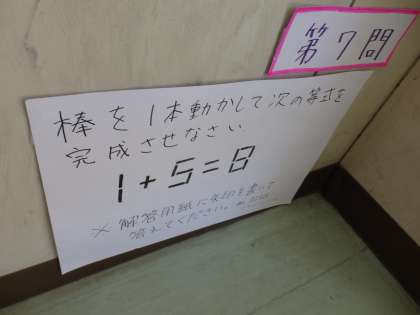 第7問
棒を1本動かして次の等式を
完成させなさい
1+5=8
※解答用紙に矢印を書いて
答えてください。